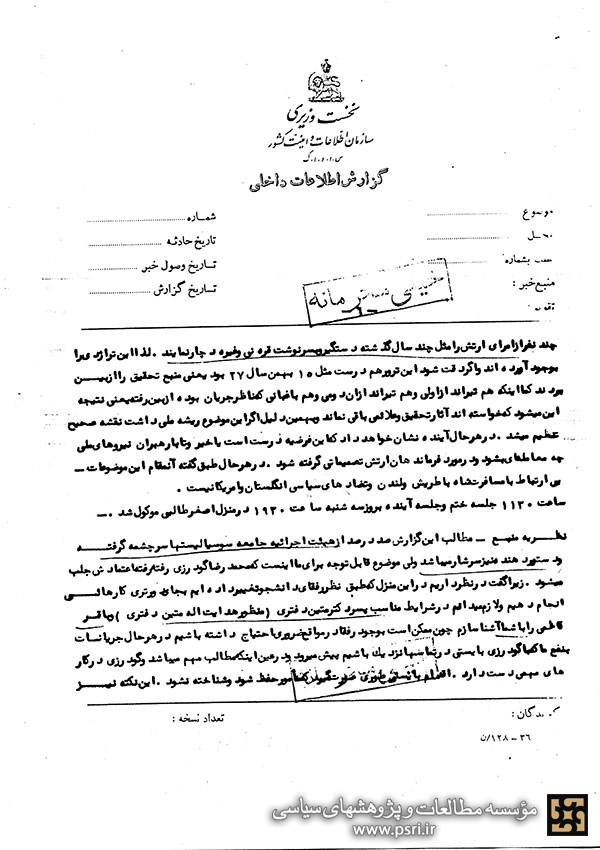 نخست وزیری
سازمان اطلاعات و امنیت کشور
س.ا.و.ا.ک
گزارش اطلاعات داخلی
موضوع
شماره
محل
تاریخ حادثه
عطف بشماره
تاریخ وصول خبر
منبع خبر :
تاریخ گزارش
چند نفر از امرای ارتش را مثل چند سال گذشته دستگیر و بسرنوشت قره نی وغیره دچار نمایند . لذا این تراژدی را
بوجود آورده اند و اگر دقت شود این ترور هم درست مثل ۱۵ بهمن سال ۲۷ بود یعنی منبع تحقیق را از بین
بردند کما اینکه هم تیرانداز اولی وهم تیرانداز دومی وهم باغبانی که ناظر جریان بوده از بین رفته یعنی نتیجه
این میشود که خواسته اند آثار تحقیق وعلائمی باقی نماند وبهمین دلیل اگر این موضوع ریشه ملی داشت نقشه صحیح
تنظیم میشد . در هر حال آینده نشان خواهد داد که این فرضیه درست است یا خیر وتا با رهبران نیروهای ملی
چه معامله ای بشود ودر مورد فرماندهان ارتش تصمیماتی گرفته شود . در هر حال طبق گفته آنمقام این موضوعات -
بی ارتباط با مسافرت شاه با طریش ولندن وتضاد های سیاسی انگلستان وامریکا نیست .
ساعت ۱۱۳۰ جلسه ختم وجلسه آینده بروز سه شنبه ساعت ۱۹۳۰ در منزل اصغر طالبی موکول شد .ـ
نظریه منبع - مطالب این گزارش صد در صد از هیئت اجرائیه جامعه سوسیالیستها سرچشمه گرفته
ودستور دهنده نیز سرشار میباشد ولی موضوع قابل توجه برای ما اینست که محمد رضا گودرزی رفته رفته اعتمادش جلب
میشود . زیرا گفت در نظر داریم در این منزل که طبق نظر رفقای دانشجو تغییر داده ایم بجای ورتری کارهائی
انجام دهیم ولازم میدانم در شرایط مناسب پسر دکتر متین دفتری ( منظور هدایت اله متین دفتری ) وباقر
کاظمی را با شما آشنا سازم چون ممکن است بوجود رفقا در مواقع ضروری احتیاج داشته باشیم در هر حال جریانات
بنفع ماکه با گودرزی بایستی در تماسها نزدیک باشیم پیش میرود ودر عین اینکه مطالب مهم میباشد وگودرزی در کار
های مهمی دست دارد . اقدام بایستی طوری صورت گیرد که مامور حفظ شود وشناخته نشود . این نکته نیز
گیرندگان :
تعداد نسخه :
۳۶ - ۱۲۸/ن
مؤسسه مطالعات و پژوهشهای سیاسی
www.psri.ir